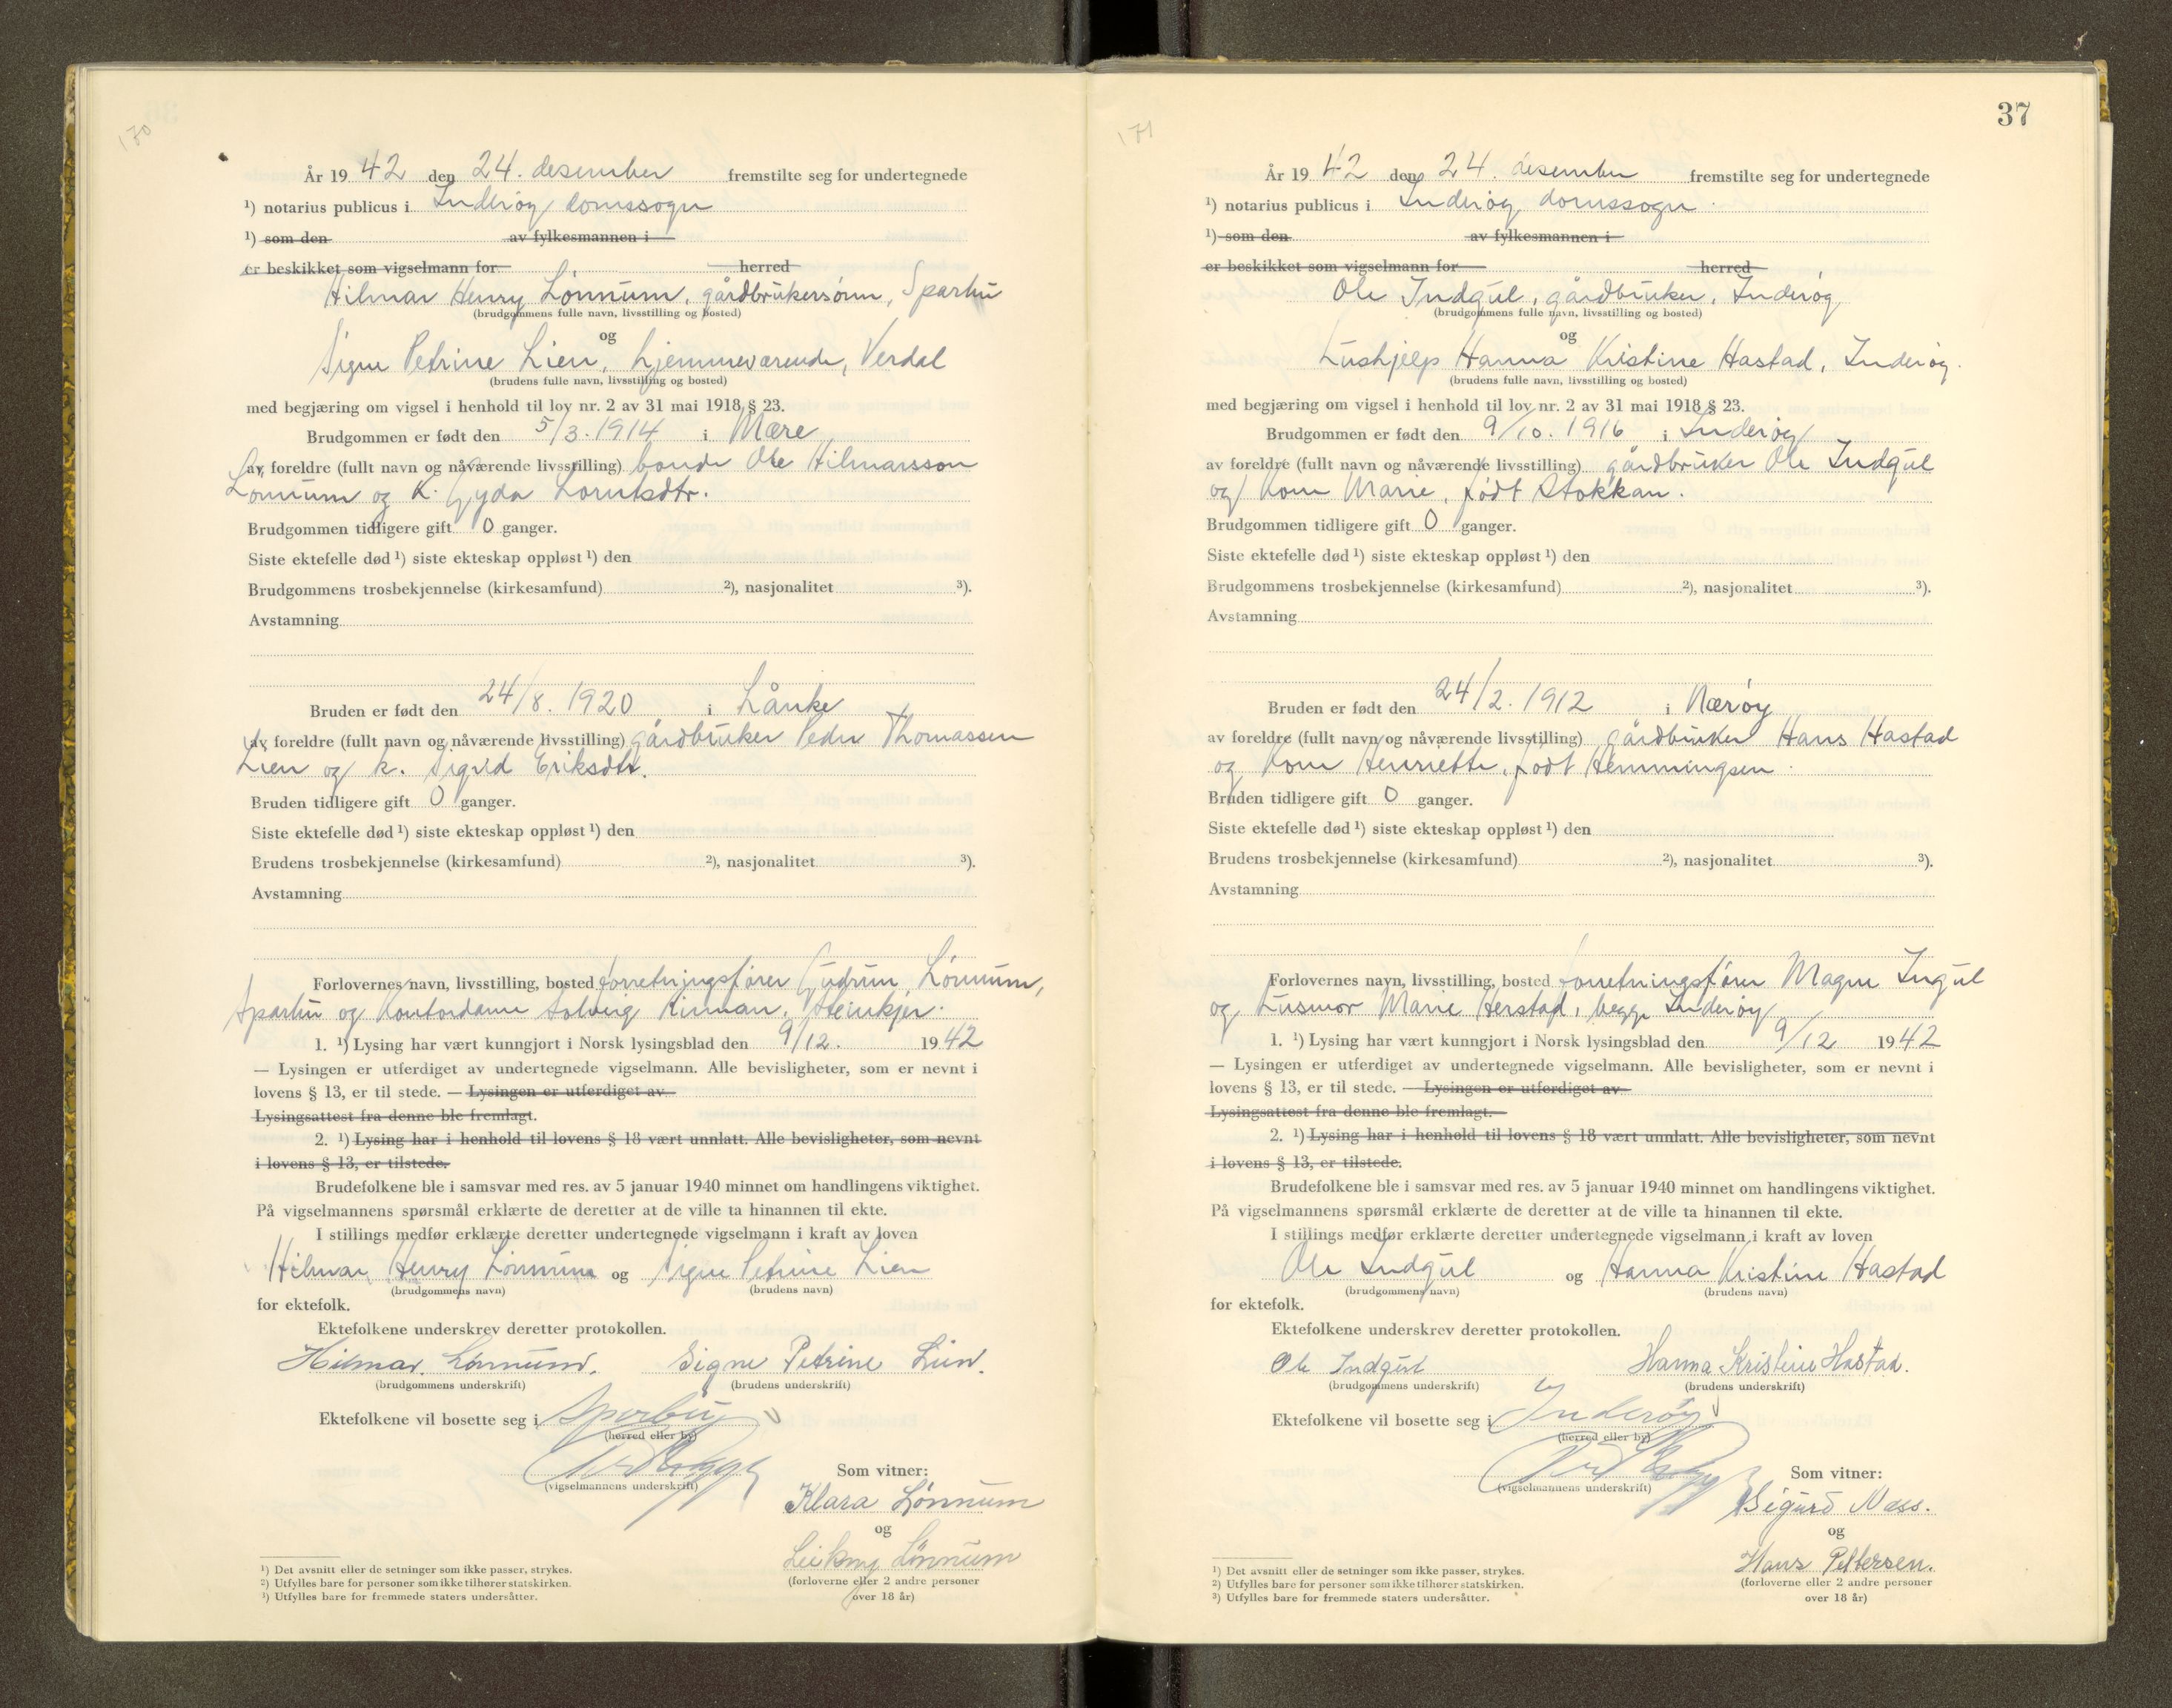 170
År 19 42 den 24. desember fremstilte seg for undertegnede
¹) notarius publicus i Inderøy domssogn
¹) som den av fylkesmannen i
er beskikket som vigselmann for herred
Hilmar Henry Lønnum, gårdbrukersønn, Sparbu
(brudgommens fulle navn, livsstilling og bosted)
og
Signe Petrine Lien, hjemmeværende, Verdal
(brudens fulle navn, livsstilling og bosted)
med begjæring om vigsel i henhold til lov nr. 2 av 31 mai 1918 § 23.
Brudgommen er født den 5/3. 1914 i Mære
av foreldre (fullt navn og nåværende livsstilling) bonde Ole Hilmarsson
Lønnum og k. Gyda Lorntsdtr.
Brudgommen tidligere gift 0 ganger.
Siste ektefelle død ¹) siste ekteskap oppløst ¹) den
Brudgommens trosbekjennelse (kirkesamfund) ²), nasjonalitet ³).
Avstamning
Bruden er født den 24/8. 1920 i Lånke
av foreldre (fullt navn og nåværende livsstilling) gårdbruker Peder Thomassen
Lien og k. Sigrid Eriksdtr.
Bruden tidligere gift 0 ganger.
Siste ektefelle død ¹) siste ekteskap oppløst ¹) den
Brudens trosbekjennelse (kirkesamfund) ²), nasjonalitet ³).
Avstamning
Forlovernes navn, livsstilling, bosted forretningsfører Gudrun Lønnum,
Sparbu og kontordame Solveig Steinkjer.
1. ¹) Lysing har vært kunngjort i Norsk lysingsblad den 9/12. 19 42
— Lysingen er utferdiget av undertegnede vigselmann. Alle bevisligheter, som er nevnt i
lovens § 13, er til stede. — Lysingen er utferdiget av
Lysingsattest fra denne ble fremlagt.
2. ¹) Lysing har i henhold til lovens § 18 vært unnlatt. Alle bevisligheter, som nevnt
i lovens § 13, er tilstede.
Brudefolkene ble i samsvar med res. av 5 januar 1940 minnet om handlingens viktighet.
På vigselmannens spørsmål erklærte de deretter at de ville ta hinannen til ekte.
I stillings medfør erklærte deretter undertegnede vigselmann i kraft av loven
Hilmar Henry Lønnum og Signe Petrine Lien
(brudgommens navn) (brudens navn)
for ektefolk.
Ektefolkene underskrev deretter protokollen.
Hilmar Lønnum. Signe Petrine Lien.
(brudgommens underskrift) (brudens underskrift)
Ektefolkene vil bosette seg i Sparbu
(herred eller by)
(vigselmannens underskrift)
Som vitner:
Klara Lønnum
og
Leikny Lønnum
(forloverne eller 2 andre personer
over 18 år)
¹) Det avsnitt eller de setninger som ikke passer, strykes.
²) Utfylles bare for personer som ikke tilhører statskirken.
³) Utfylles bare for fremmede staters undersåtter.
37
171
År 19 42 den 24. desember fremstilte seg for undertegnede
¹) notarius publicus i Inderøy domssogn
¹) som den av fylkesmannen i
er beskikket som vigselmann for herred
Ole Indgul, gårdbruker, Inderøy
(brudgommens fulle navn, livsstilling og bosted)
og
hushjelp Hanna Kristine Hastad, Inderøy.
(brudens fulle navn, livsstilling og bosted)
med begjæring om vigsel i henhold til lov nr. 2 av 31 mai 1918 § 23.
Brudgommen er født den 9/10. 1916 i Inderøy
av foreldre (fullt navn og nåværende livsstilling) gårdbruker Ole Indgul
og kone Marie, født Stokkan.
Brudgommen tidligere gift 0 ganger.
Siste ektefelle død ¹) siste ekteskap oppløst ¹) den
Brudgommens trosbekjennelse (kirkesamfund) ²), nasjonalitet ³).
Avstamning
Bruden er født den 24/2. 1912 i Nærøy
av foreldre (fullt navn og nåværende livsstilling) gårdbruker Hans Hastad
og kone Henriette, født Hemmingsen.
Bruden tidligere gift 0 ganger.
Siste ektefelle død ¹) siste ekteskap oppløst ¹) den
Brudens trosbekjennelse (kirkesamfund) ²), nasjonalitet ³).
Avstamning
Forlovernes navn, livsstilling, bosted forretningsfører Magne Ingul
og husmor Marie Herstad, begge Inderøy
1. ¹) Lysing har vært kunngjort i Norsk lysingsblad den 9/12 19 42
— Lysingen er utferdiget av undertegnede vigselmann. Alle bevisligheter, som er nevnt i
lovens § 13, er til stede. — Lysingen er utferdiget av
Lysingsattest fra denne ble fremlagt.
2. ¹) Lysing har i henhold til lovens § 18 vært unnlatt. Alle bevisligheter, som nevnt
i lovens § 13, er tilstede.
Brudefolkene ble i samsvar med res. av 5 januar 1940 minnet om handlingens viktighet.
På vigselmannens spørsmål erklærte de deretter at de ville ta hinannen til ekte.
I stillings medfør erklærte deretter undertegnede vigselmann i kraft av loven
Ole Indgul og Hanna Kristine Hastad
(brudgommens navn) (brudens navn)
for ektefolk.
Ektefolkene underskrev deretter protokollen.
Ole Indgul Hanna Kristine Hastad.
(brudgommens underskrift) (brudens underskrift)
Ektefolkene vil bosette seg i Inderøy
(herred eller by)
(vigselmannens underskrift)
Som vitner:
Sigurd Næss.
og
Hans Pettersen.
(forloverne eller 2 andre personer
over 18 år)
¹) Det avsnitt eller de setninger som ikke passer, strykes.
²) Utfylles bare for personer som ikke tilhører statskirken.
³) Utfylles bare for fremmede staters undersåtter.